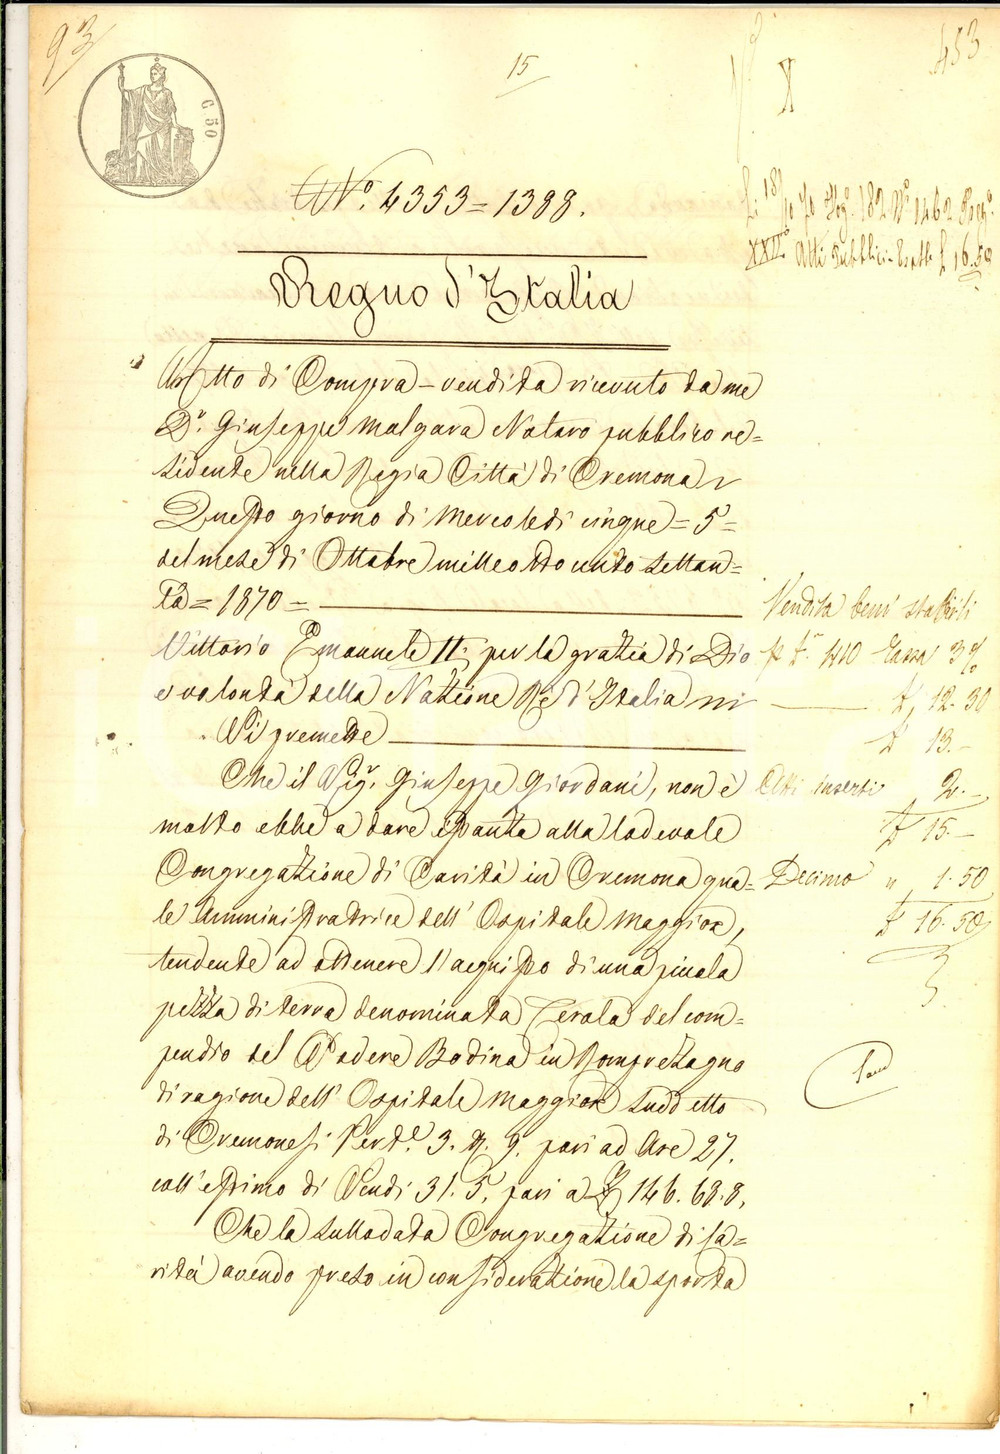 93
15
X
453
C 50
N.° 4353 = 1388.
182 N° 1462
XXII° Atti Pubblici £ 16.50
Regno d'Italia
Atto di Compra-vendita ricevuto da me
D.r Giuseppe Malgara Notaro pubblico re=
sidente nella Regia Città di Cremona
Questo giorno di Mercoledì cinque = 5 =
del mese di Ottobre milleottocento settan=
ta = 1870 =
Vittorio Emanuele II. per la grazia di Dio
e volontà della Nazione Re d'Italia
Si premette
Che il Sig.r Giuseppe Giordani, non è
molto ebbe a dare istanza alla lodevole
Congregazione di Carità in Cremona qua=
le Amministratrice dell' Ospitale Maggiore,
tendente ad ottenere l'acquisto di una piccola
pezza di terra denominata Cerola del com=
pendio del Podere Bodina in Brompretagno
di ragione dell' Ospitale Maggiore suddetto
di Cremonesi Pert.e 3. 9. pari ad Are 27.
coll'estimo di Scudi 31. 5. pari a £ 146. 68. 8.
Che la sullodata Congregazione di Ca=
rità avendo preso in considerazione la sporta
Vendita beni stabili
p £ 410 tassa 3%
£ 12. 30
£ 13. -
Atti inserti 2. -
£ 15. -
Decimo " 1. 50
£ 16. 50